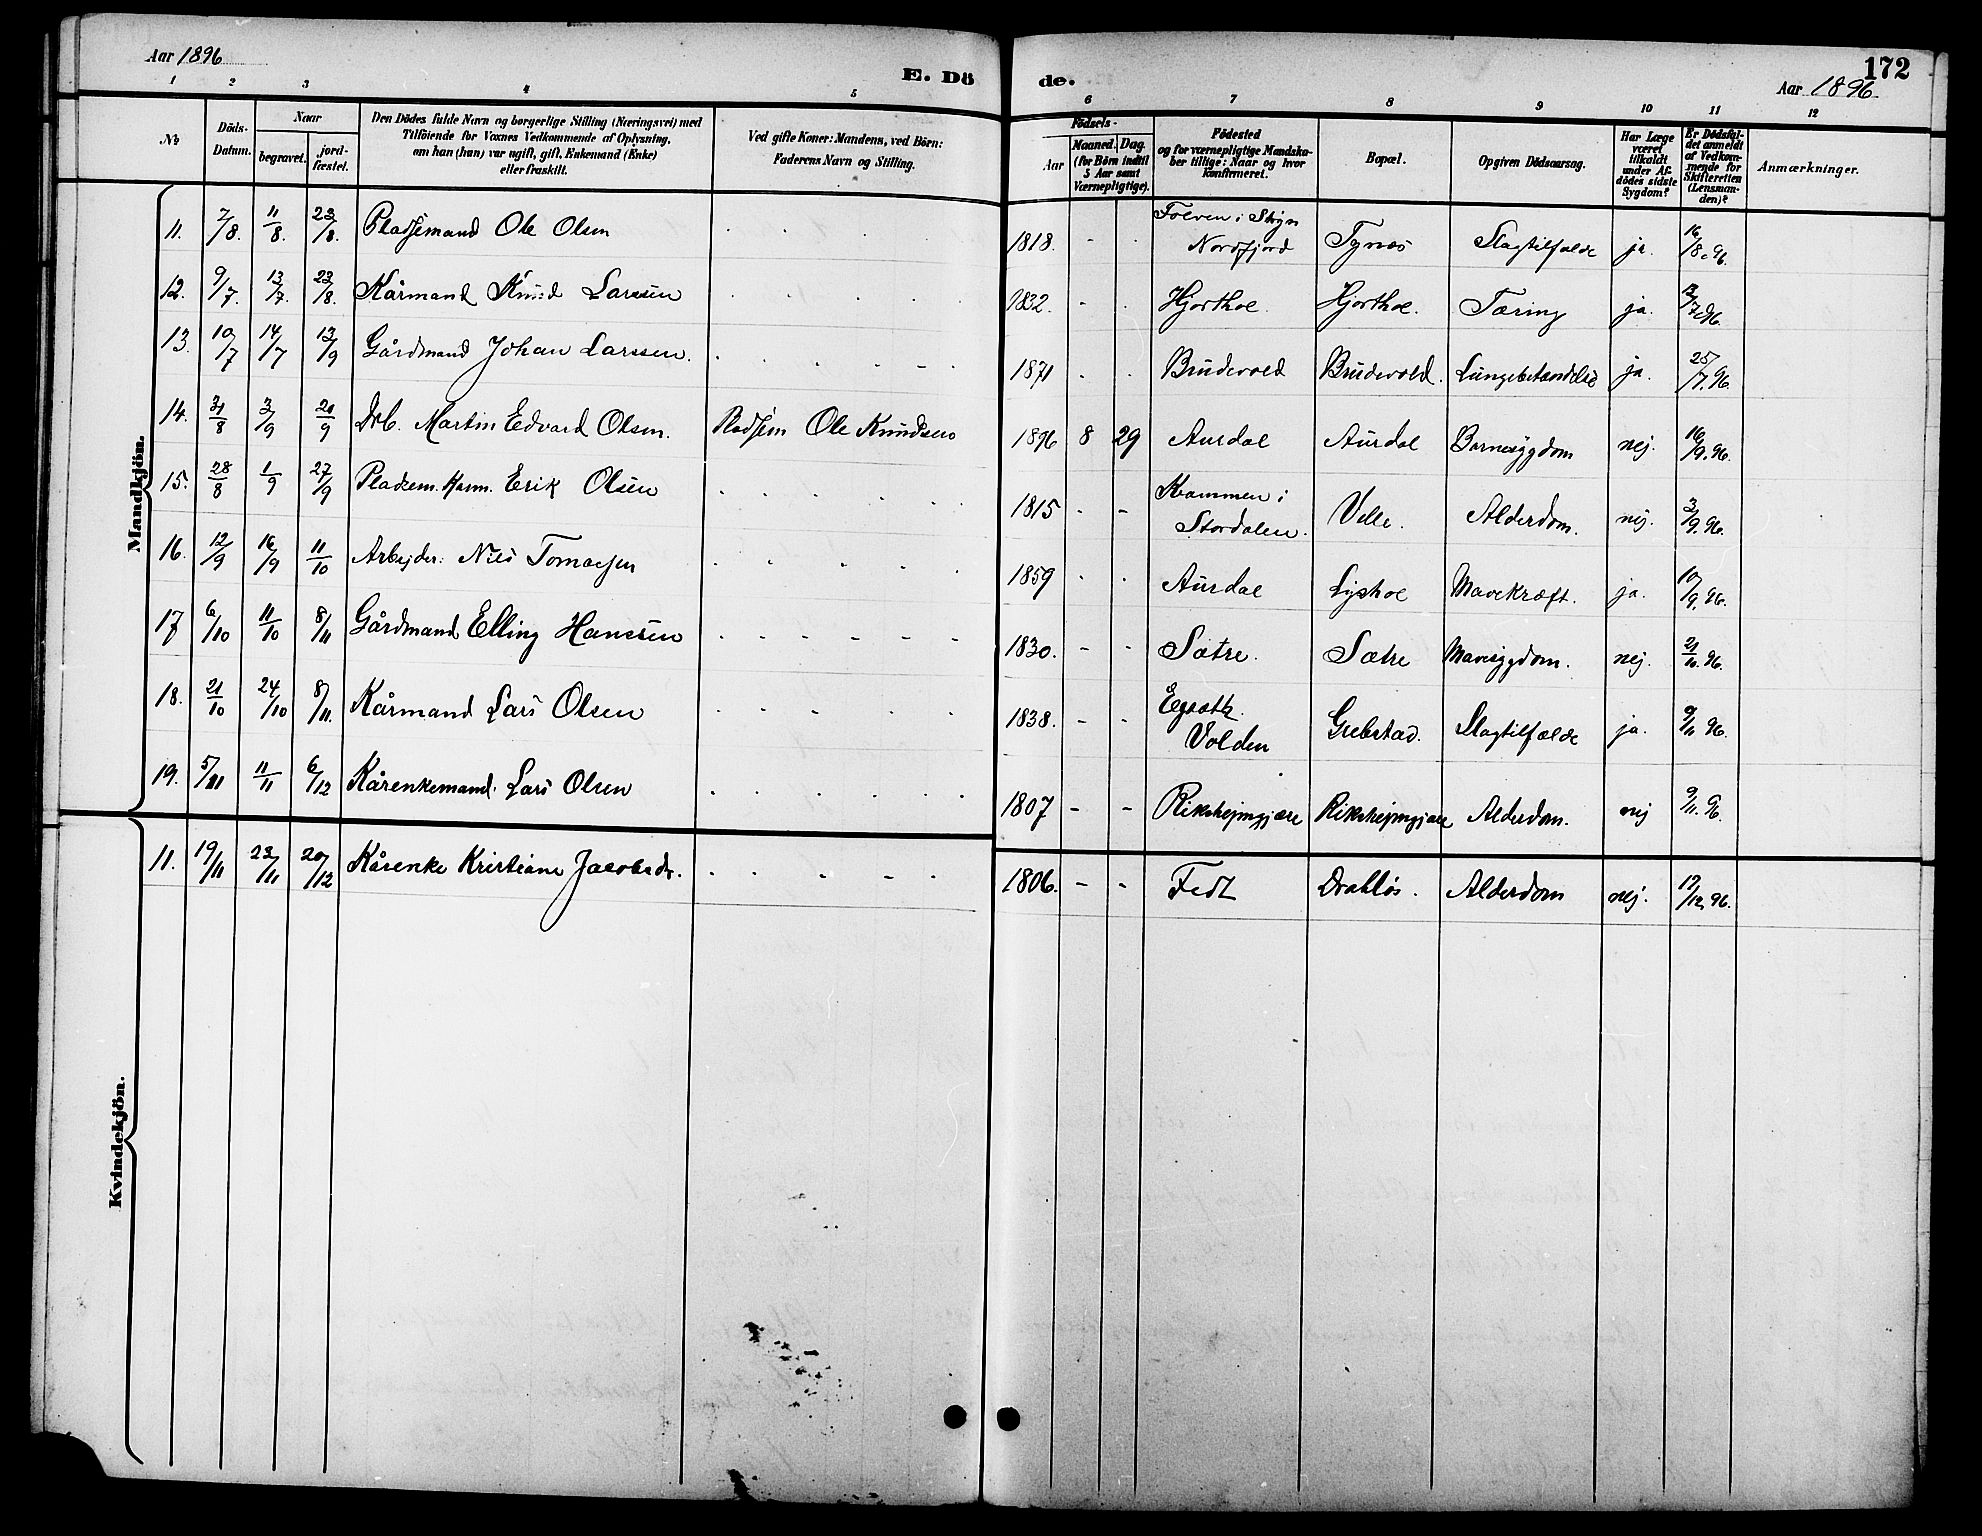 Aar 1896
E. Dö de.
172
Aar 1896.
1 2 3 4 5 6 7 8 9 10 11 12
No
Döds-Datum.
Naar
begravet.
jord-fæstet.
Den Dödes fulde Navn og borgerlige Stilling (Næringsvei) med
Tilföiende for Voxnes Vedkommende af Oplysning,
om han (hun) var ugift, gift, Enkemand (Enke)
eller fraskilt.
Ved gifte Koner: Mandens, ved Börn:
Faderens Navn og Stilling.
Födsels-
Aar
Maaned. Dag.
(for Börn indtil
5 Aar samt
Værnepligtige).
Födested
og for værnepligtige Mandska-
ber tillige: Naar og hvor
konfirmeret.
Bopæl.
Opgiven Dödsaarsag.
Har Læge
været
tilkaldt
under Af-
dödes sidste
Sygdom?
Er Dödsfal-
det anmeldt
af Vedkom-
mende for
Skifteretten
(Lensman-
den)?
Anmærkninger.
Mandkjön.
11. 7/8. 11/8. 23/8. Pladsemand Ole Olsen 1818. Folven i Stryn Nordfjord Tynæs Slagtilfælde ja. 16/8.96.
12. 9/7. 13/7. 23/8. Kårmand Knud Larssen 1832. Hjorthol. Hjorthol. Tæring ja.
13. 10/7 14/7 13/9 Gårdmand Johan Larssen. 1871 Brudevold Brudevold. Lungebetændelse ja. 25/7.96.
14. 31/8 3/9 20/9 Drb. Martin Edvard Olsen. Pladsem Ole Knudsens 1896 8 29 Aurdal Aurdal Barnesygdom nej. 16/9.96.
15. 28/8 1/9 27/9 Pladsem. Karm. Erik Olsen 1815 Kammen i Stordalen. Velle. Alderdom. nej. 3/9.96.
16. 12/9 16/9 11/10 Arbejder: Nils Tomassen 1859 Aurdal Lyshol Mavekræft. ja. 19/9.96.
17 6/10 11/10 8/11 Gårdmand Elling Hanssen 1830. Sætre. Sætre Mavesygdom. nej. 21/10.96.
18. 21/10 24/10 8/11. Kårmand Lars Olsen 1838. Egsæth Volden Grebstad. Slagtilfælde ja. 9/11 96.
19. 5/11 11/11 6/12 Kårenkemand. Lars Olsen 1807 Rikshejmgjære Rikshejmgjære Alderdom. nej 9/11.96.
Kvindekjön.
11. 19/11 23/11 20/12 Kårenke Kristiane Jacobsdr. 1806. Fedt Drabløs. Alderdom nej. 19/12.96.